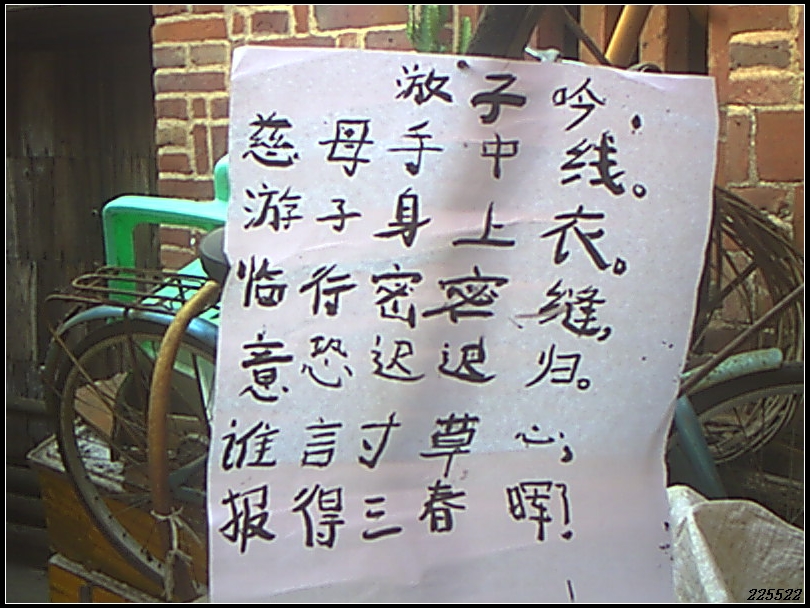 游子吟：
慈母手中线。
游子身上衣。
临行密密缝，
意恐迟迟归。
谁言寸草心；
报得三春晖！
225522